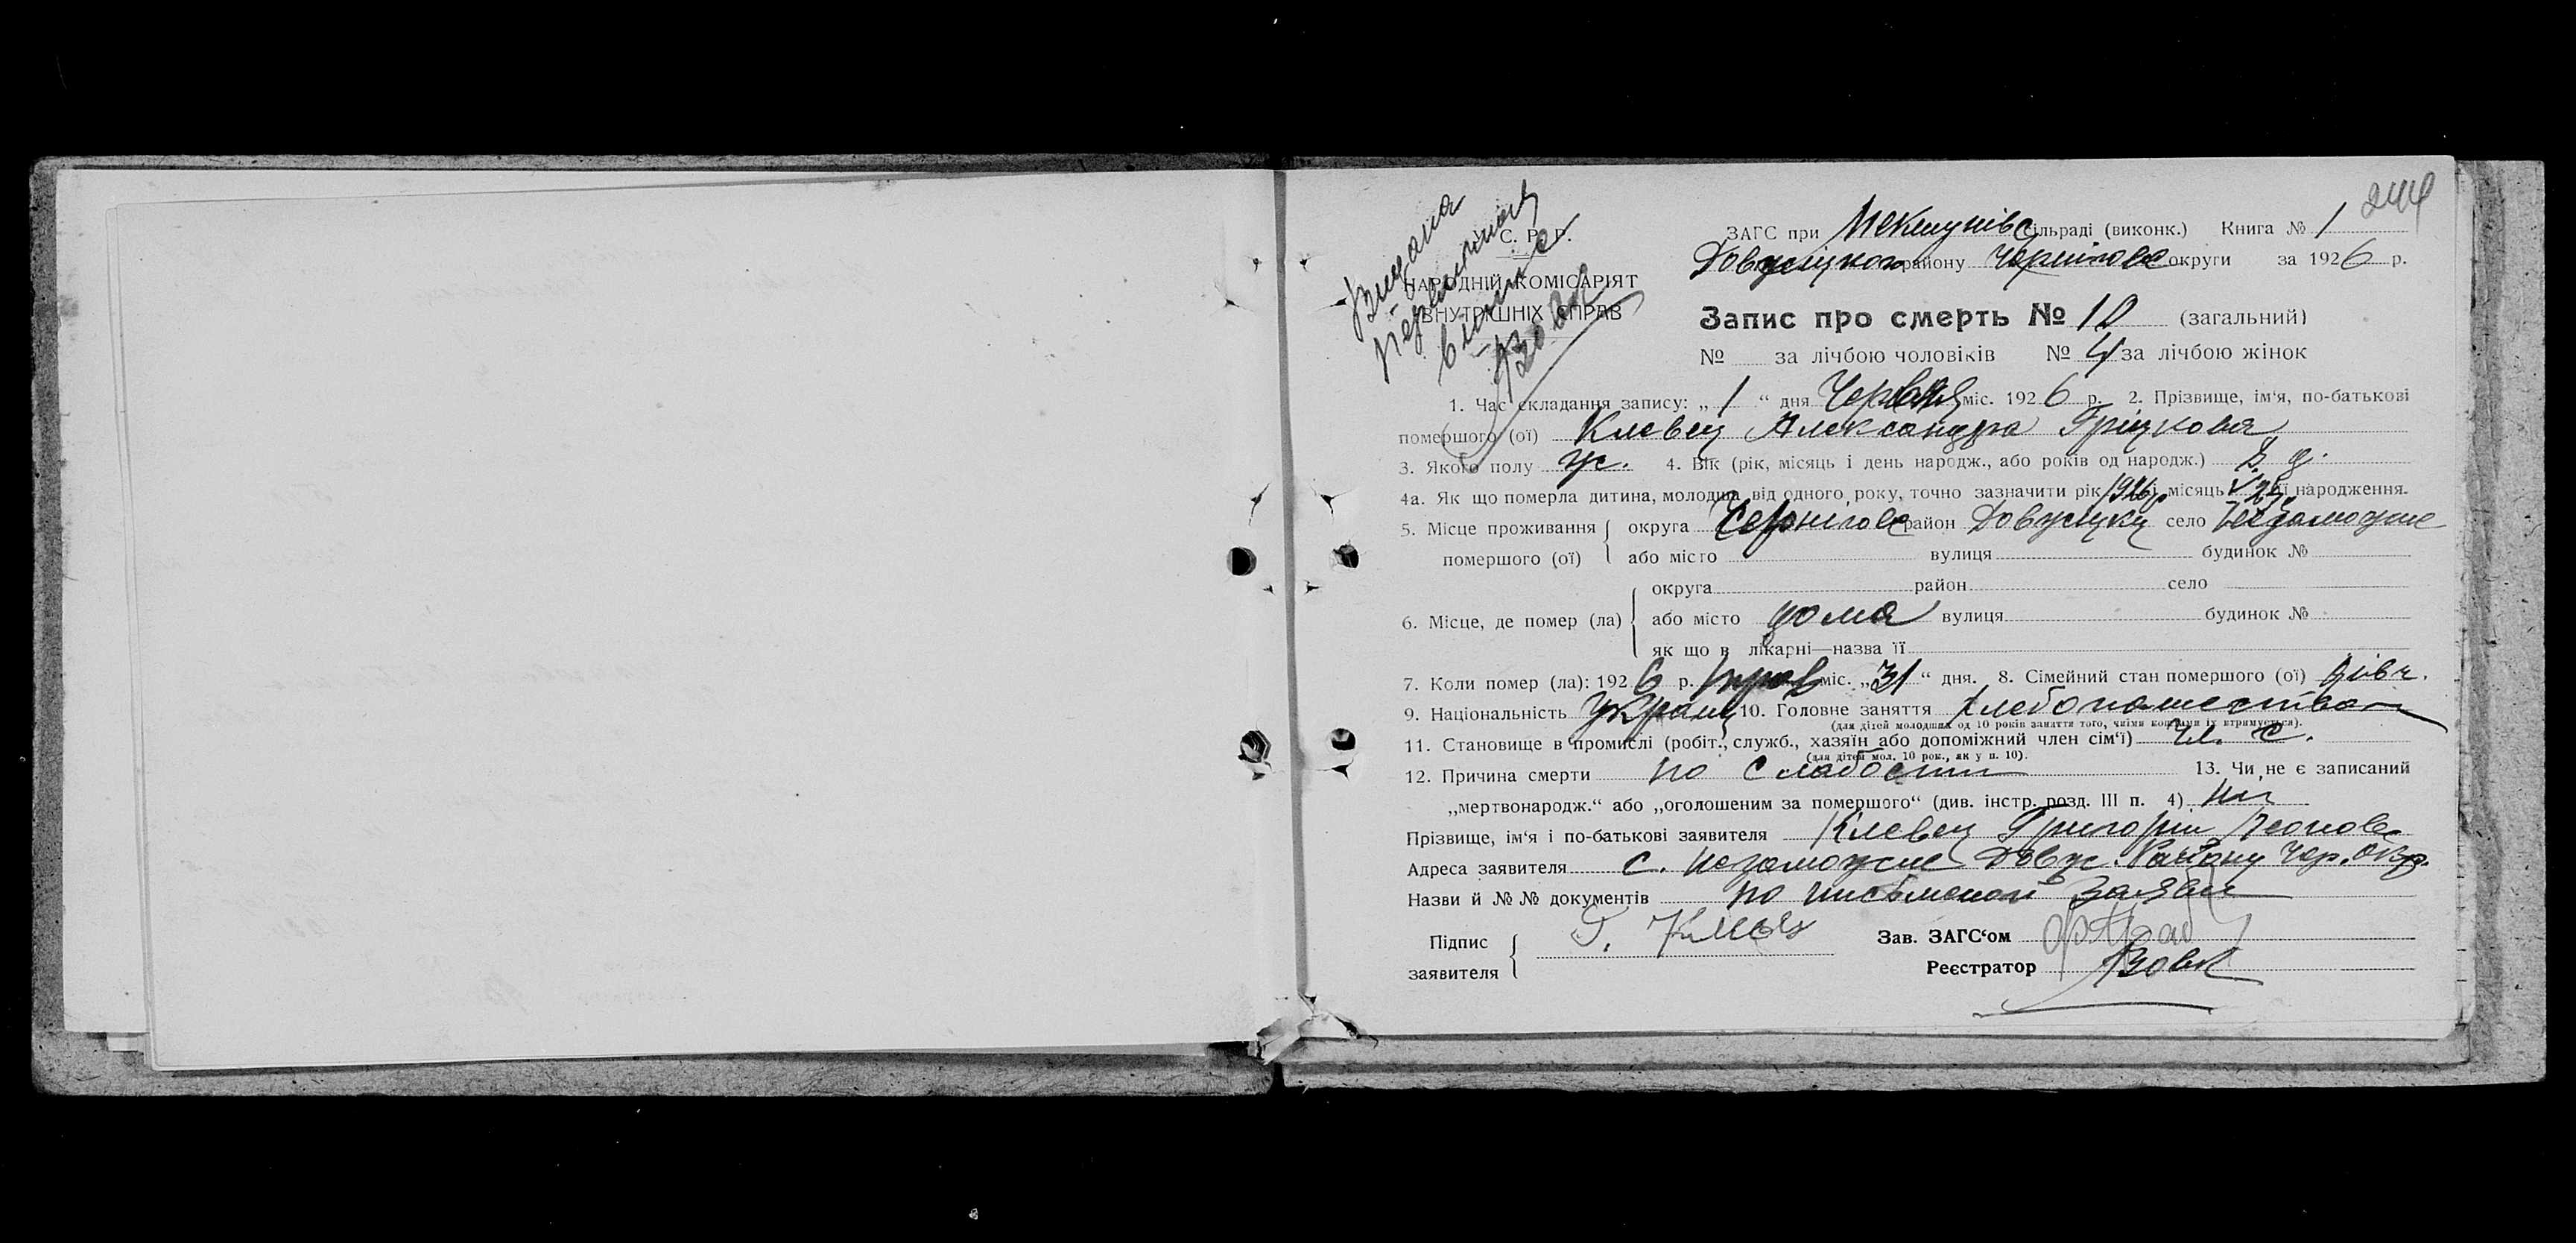 244
Видана
первинна
виписка
Вовк
У. С. Р. Р.
НАРОДНІЙ КОМІСАРІЯТ
ВНУТРІШНІХ СПРАВ
ЗАГС при сільраді (виконк.) Книга № 1
району Чернігове округи за 1926 р.
Запис про смерть № 10 (загальний)
№ за лічбою чоловіків № 4 за лічбою жінок
1. Час складання запису: „ 1 “ дня Червня міс. 1926 р. 2. Прізвище, ім'я, по-батькові
помершого (ої) Клевец Александра Гріцкова
3. Якого полу ж. 4. Вік (рік, місяць і день народж., або років од народж.) д.
4а. Як що померла дитина, молодша від одного року, точно зазначити рік 1926р місяць V її народження.
5. Місце проживання помершого (ої) округа Чернігове район село Незаможне
або місто вулиця будинок №
6. Місце, де помер (ла) округа район село
або місто дома вулиця будинок №
як що в лікарні—назва її
7. Коли помер (ла): 1926 р. трав міс. „ 31 “ дня. 8. Сімейний стан помершого (ої) дівч.
9. Національність Украинц 10. Головне заняття Хлебопашество
(для дітей молодших од 10 років заняття того, чиїми коштами їх втримується).
11. Становище в промислі (робіт., служб., хазяїн або допоміжний член сім'ї) Чл. С.
(для дітей мол. 10 рок., як у п. 10).
12. Причина смерти по слабости 13. Чи не є записаний
„мертвонародж.“ або „оголошеним за помершого“ (див. інстр. розд. III п. 4) ни
Прізвище, ім'я і по-батькові заявителя Клевец Григорій
Адреса заявителя с. Незаможне Довж. Району Чер. Окр.
Назви й №№ документів по письменой Заяви
Підпис заявителя Г. Клевец
Зав. ЗАГС'ом
Реєстратор Вовк